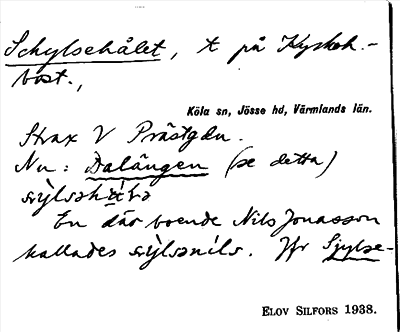 Schylsehålet, t. på Kyrkeh.-
bost.,
Köla sn, Jösse hd, Värmlands län.
Strax V Prästgdn.
Nu: Dalängen (se detta)
En där boende Nils Jonasson
kallades . Jfr Sjylse-
ELOV SILFORS 1938.